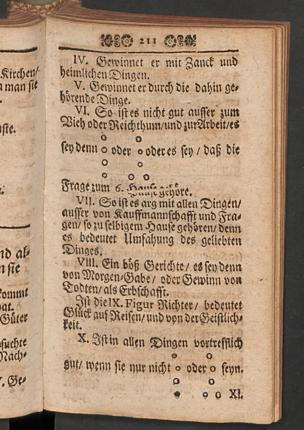 Kirchen/
man sie
nd al-
n sie
kommt
at.
Güter
suchte
Nach-
. Ge-
211
IV. Gewinnet er mit Zanck und
heimlichen Dingen.
V. Gewinnet er durch die dahin ge-
hörende Dinge.
VI. So ist es nicht gut ausser zum
Vieh oder Reichthum/und zur Arbeit/es
sey denn oder oder es sey / daß die
Frage zum 6. Hause gehöre.
VII. So ist es arg mit allen Dingen/
ausser von Kauffmannschafft und Fra-
gen/ so zu selbigem Hause gehören/ denn
es bedeutet Umfahung des geliebten
Dinges.
VIII. Ein böß Gerichte/ es sey denn
von Morgen-Gabe/ oder Gewinn von
Todten/ als Erbschafft.
Ist die IX. Figur Richter/ bedeutet
Glück auf Reisen/ und von der Geistlich-
keit.
X. Ist in allen Dingen vortrefflich
gut/ wenn sie nur nicht oder seyn.
XI.